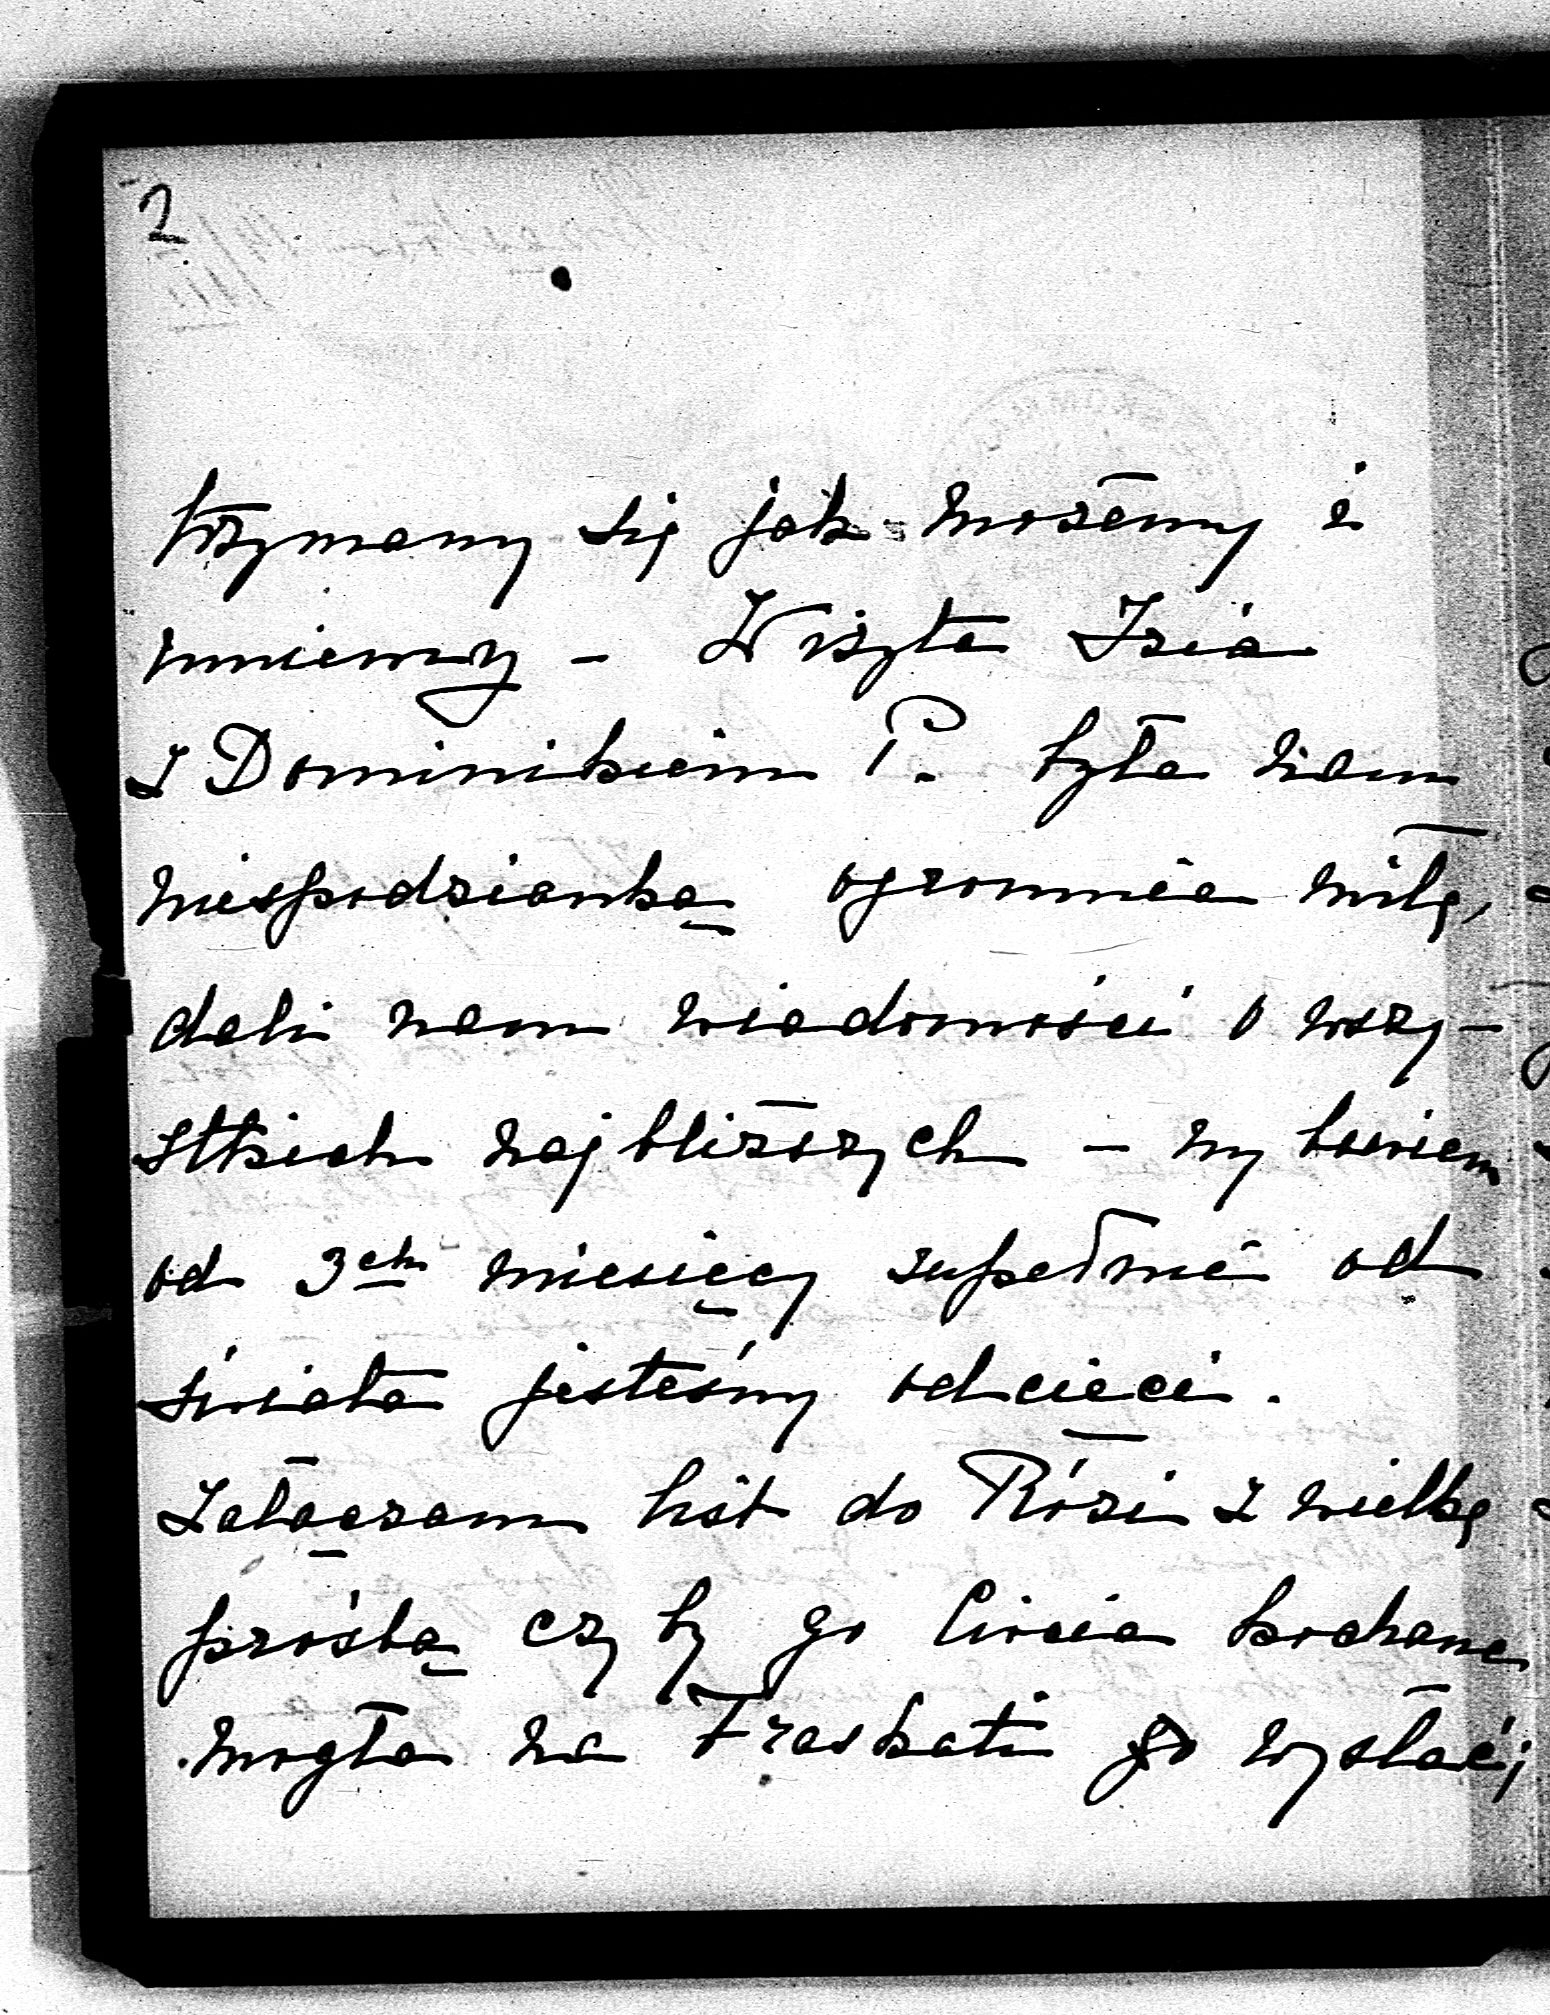 2
trzymamy się jak możemy i
umiemy – Wizyta Izia
z Dominikiem P. była nam
niespodzianką ogromnie miłą,
dali nam wiadomości o wszy–
stkich najbliższych – my bowiem
od 3ch miesięcy zupełnie od
świata jesteśmy odcięci.
Załączam list do Rózi z wielką
prośbą czy by go Ciocia kochana
mogła na Fraskati go wysłać;